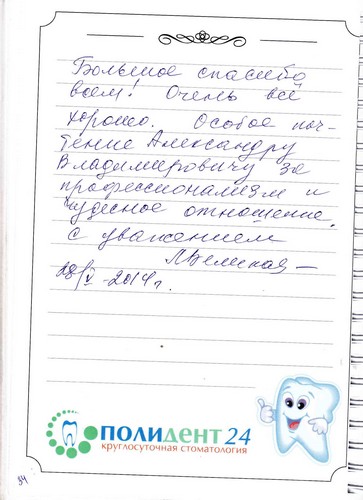 Большое спасибо
всем! Очень всё
хорошо. Особое поч-
тение Александру
Владимировичу за
профессионализм и
чудесное отношение.
с уважением
28/V-2014г.
ПОЛИДЕНТ 24
круглосуточная стоматология
94